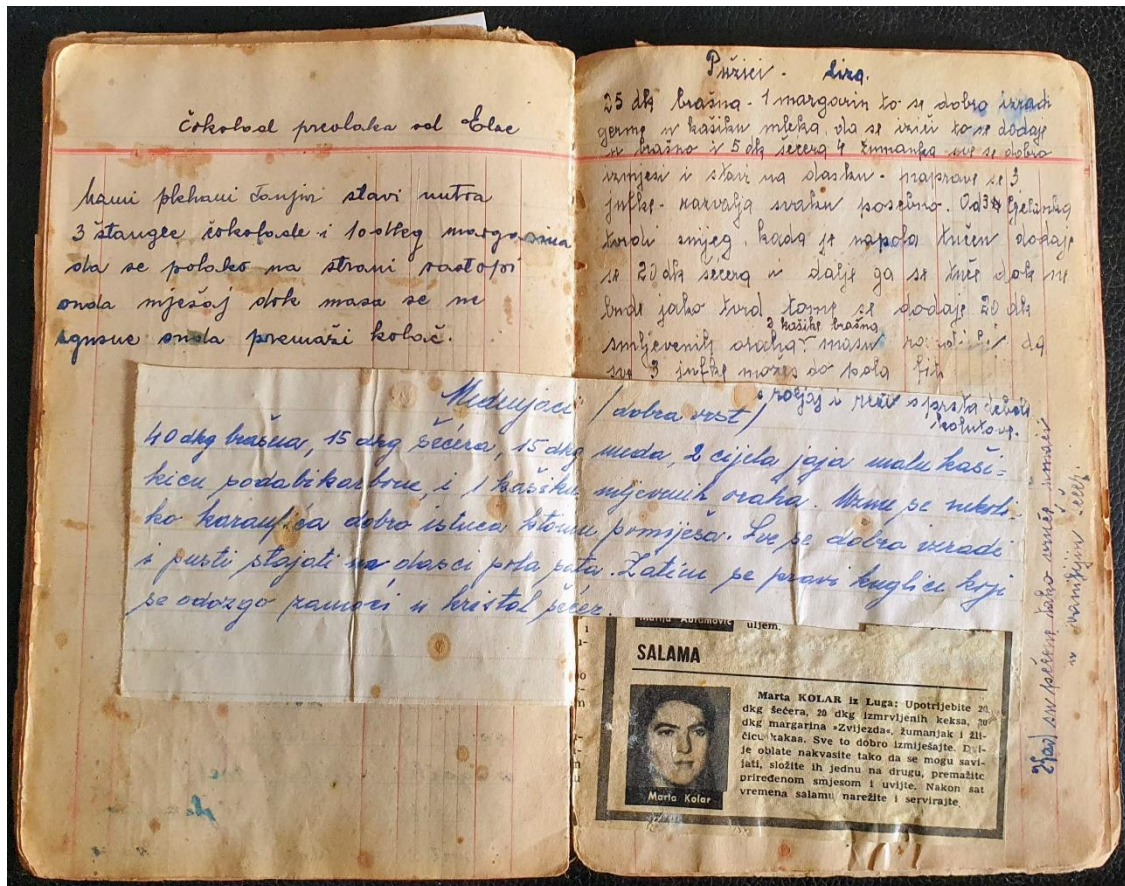 čokolad preolaka od Else
stavi nutra
3 štangle čokolade i 10 dkg margarina
da se polako na strani rastopi
onda mješaj dok masa se ne
zgusne onda premaži kolač.
Pužići - Liza.
25 dk brašna - 1 margarin to se dobro izradi
germe u kašiku mleka, da se to se dodaje
u brašno i 5 dk šećera 4 žumanjka sve se dobro
izmjesi i stavi na dasku - naprave se 3
jufke - razvalja svaku posebno. Od bjelanjka
tvrdi snijeg, kada je napola tučen dodaje
se 20 dk šećera u dalje ga se tuče dok ne
bude jako tvrd tome se dodaje 20 dk
3 kašike brašna
smljevenih oraha masu da
sve 3 jufke možeš do pola
roljaj i reži s prsta debele
Medenjaci / dobra vrst /
40 dkg brašna, 15 dkg šećera, 15 dkg meda, 2 cijela jaja malu kaši=
kicu sodabikarbone, i 1 kašiku mljevenih oraha. Uzme se nekoli-
ko karanfića dobro istuca i tome pomiješa. Sve se dobro izradi
i pusti stajati na dasci pola sata. Zatim se pravi kuglice koji
se odozgo zamoči u kristal šećer.
Kad su pečene tako vruće umoči
u vanilijin šećer.
Marija Abramović
uljem.
SALAMA
Marta KOLAR iz Luga: Upotrijebite 20
dkg šećera, 20 dkg izmrvljenih keksa, 20
dkg margarina »Zvijezda«, žumanjak i žli-
čicu kakaa. Sve to dobro izmiješajte. Dvi-
je oblate nakvasite tako da se mogu savi-
jati, složite ih jednu na drugu, premažite
priređenom smjesom i uvijte. Nakon sat
vremena salamu narežite i servirajte.
Marta Kolar